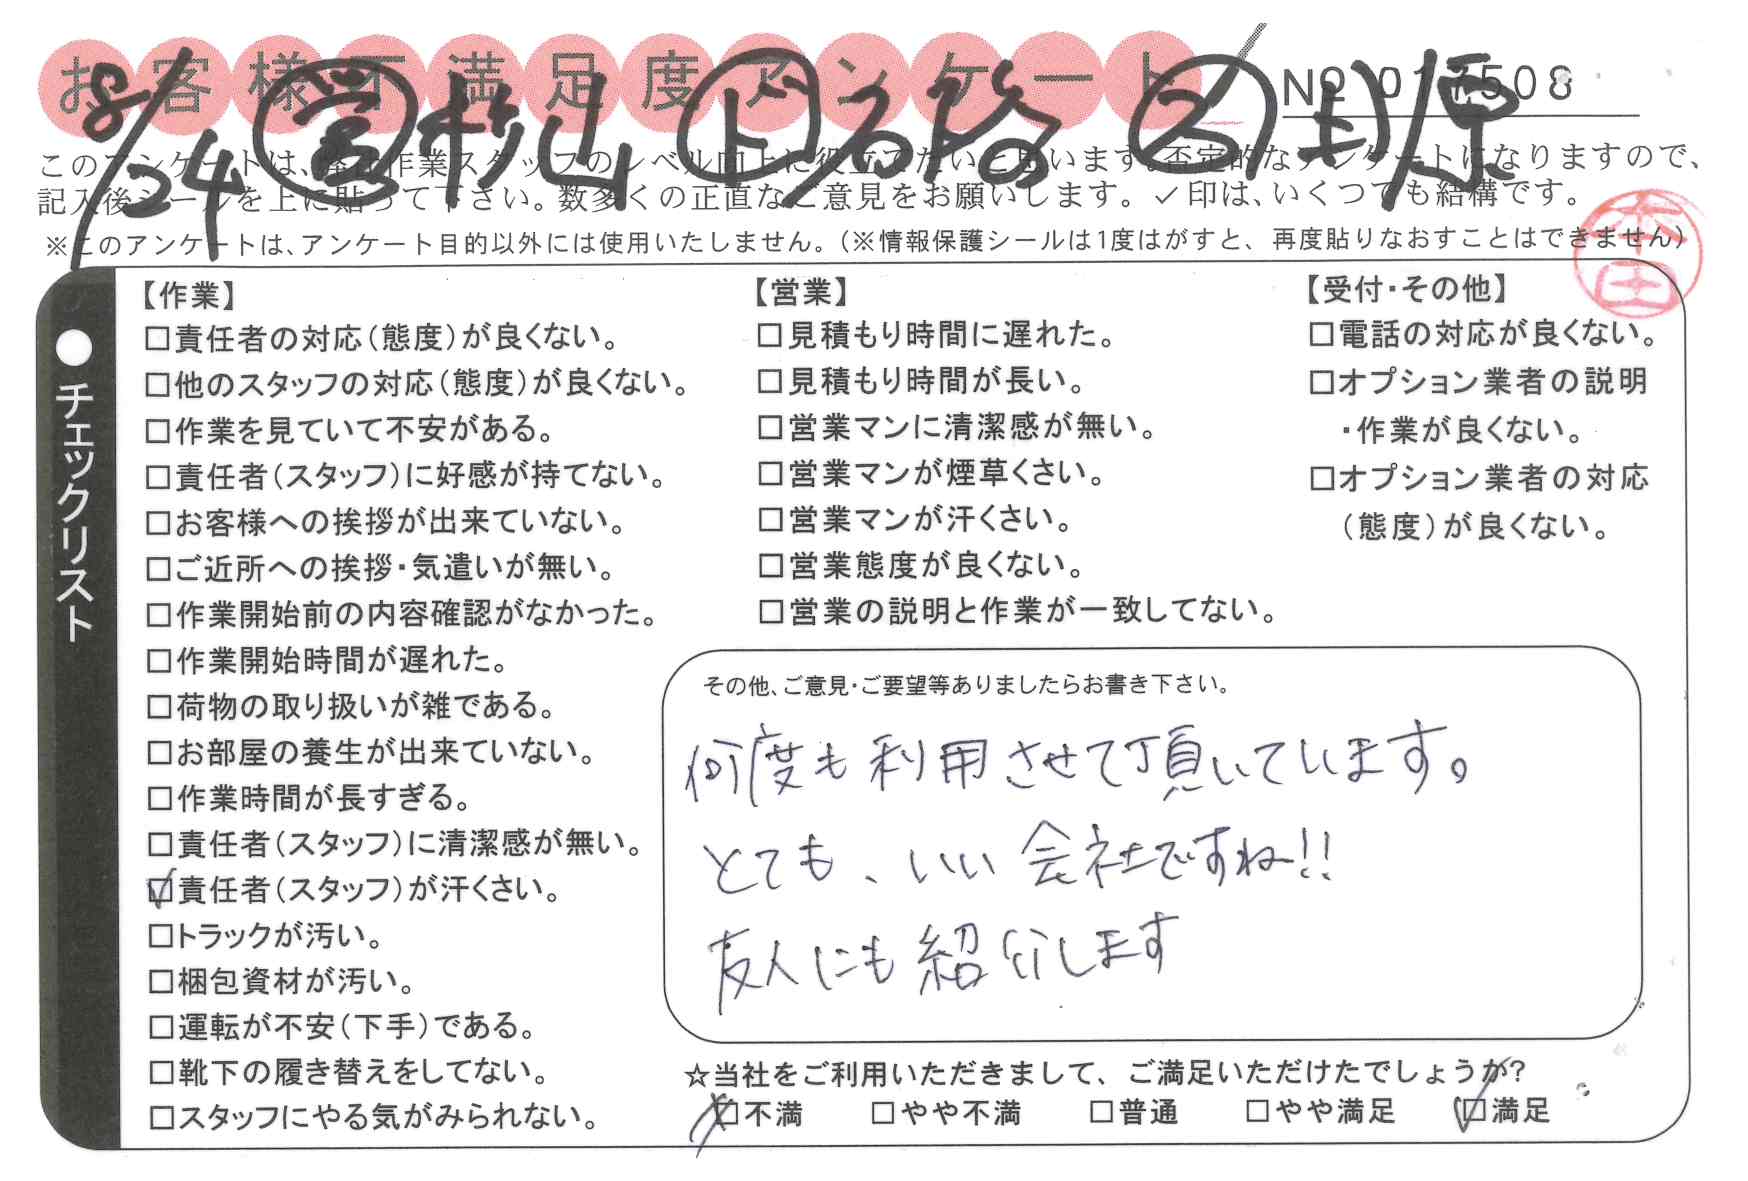 お客様不満足度アンケート
8/24 営 桃山 ト ス 田原
No 017508
このアンケートは、弊社作業スタッフのレベル向上に役立てたいと思います。否定的なアンケートになりますので、
記入後シールを上に貼って下さい。数多くの正直なご意見をお願いします。✓印は、いくつでも結構です。
※このアンケートは、アンケート目的以外には使用いたしません。(※情報保護シールは1度はがすと、再度貼りなおすことはできません)
本田
●チェックリスト
【作業】
□責任者の対応(態度)が良くない。
□他のスタッフの対応(態度)が良くない。
□作業を見ていて不安がある。
□責任者(スタッフ)に好感が持てない。
□お客様への挨拶が出来ていない。
□ご近所への挨拶・気遣いが無い。
□作業開始前の内容確認がなかった。
□作業開始時間が遅れた。
□荷物の取り扱いが雑である。
□お部屋の養生が出来ていない。
□作業時間が長すぎる。
□責任者(スタッフ)に清潔感が無い。
☑責任者(スタッフ)が汗くさい。
□トラックが汚い。
□梱包資材が汚い。
□運転が不安(下手)である。
□靴下の履き替えをしてない。
□スタッフにやる気がみられない。
【営業】
□見積もり時間に遅れた。
□見積もり時間が長い。
□営業マンに清潔感が無い。
□営業マンが煙草くさい。
□営業マンが汗くさい。
□営業態度が良くない。
□営業の説明と作業が一致してない。
【受付・その他】
□電話の対応が良くない。
□オプション業者の説明
・作業が良くない。
□オプション業者の対応
(態度)が良くない。
その他、ご意見・ご要望等ありましたらお書き下さい。
何度も利用させて頂いています。
とても、いい会社ですね!!
友人にも紹介します
☆当社をご利用いただきまして、ご満足いただけたでしょうか?
□不満 □やや不満 □普通 □やや満足 ☑満足